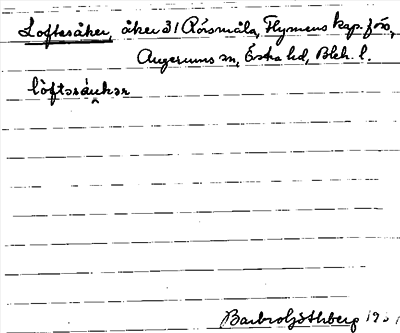 Loftesåker, åker å 1 Rörsmåla, Flymens kap.förs.,
Augerums sn, Östra hd, Blek. l.
löftərsåukər
Barbro Götherberg 1931